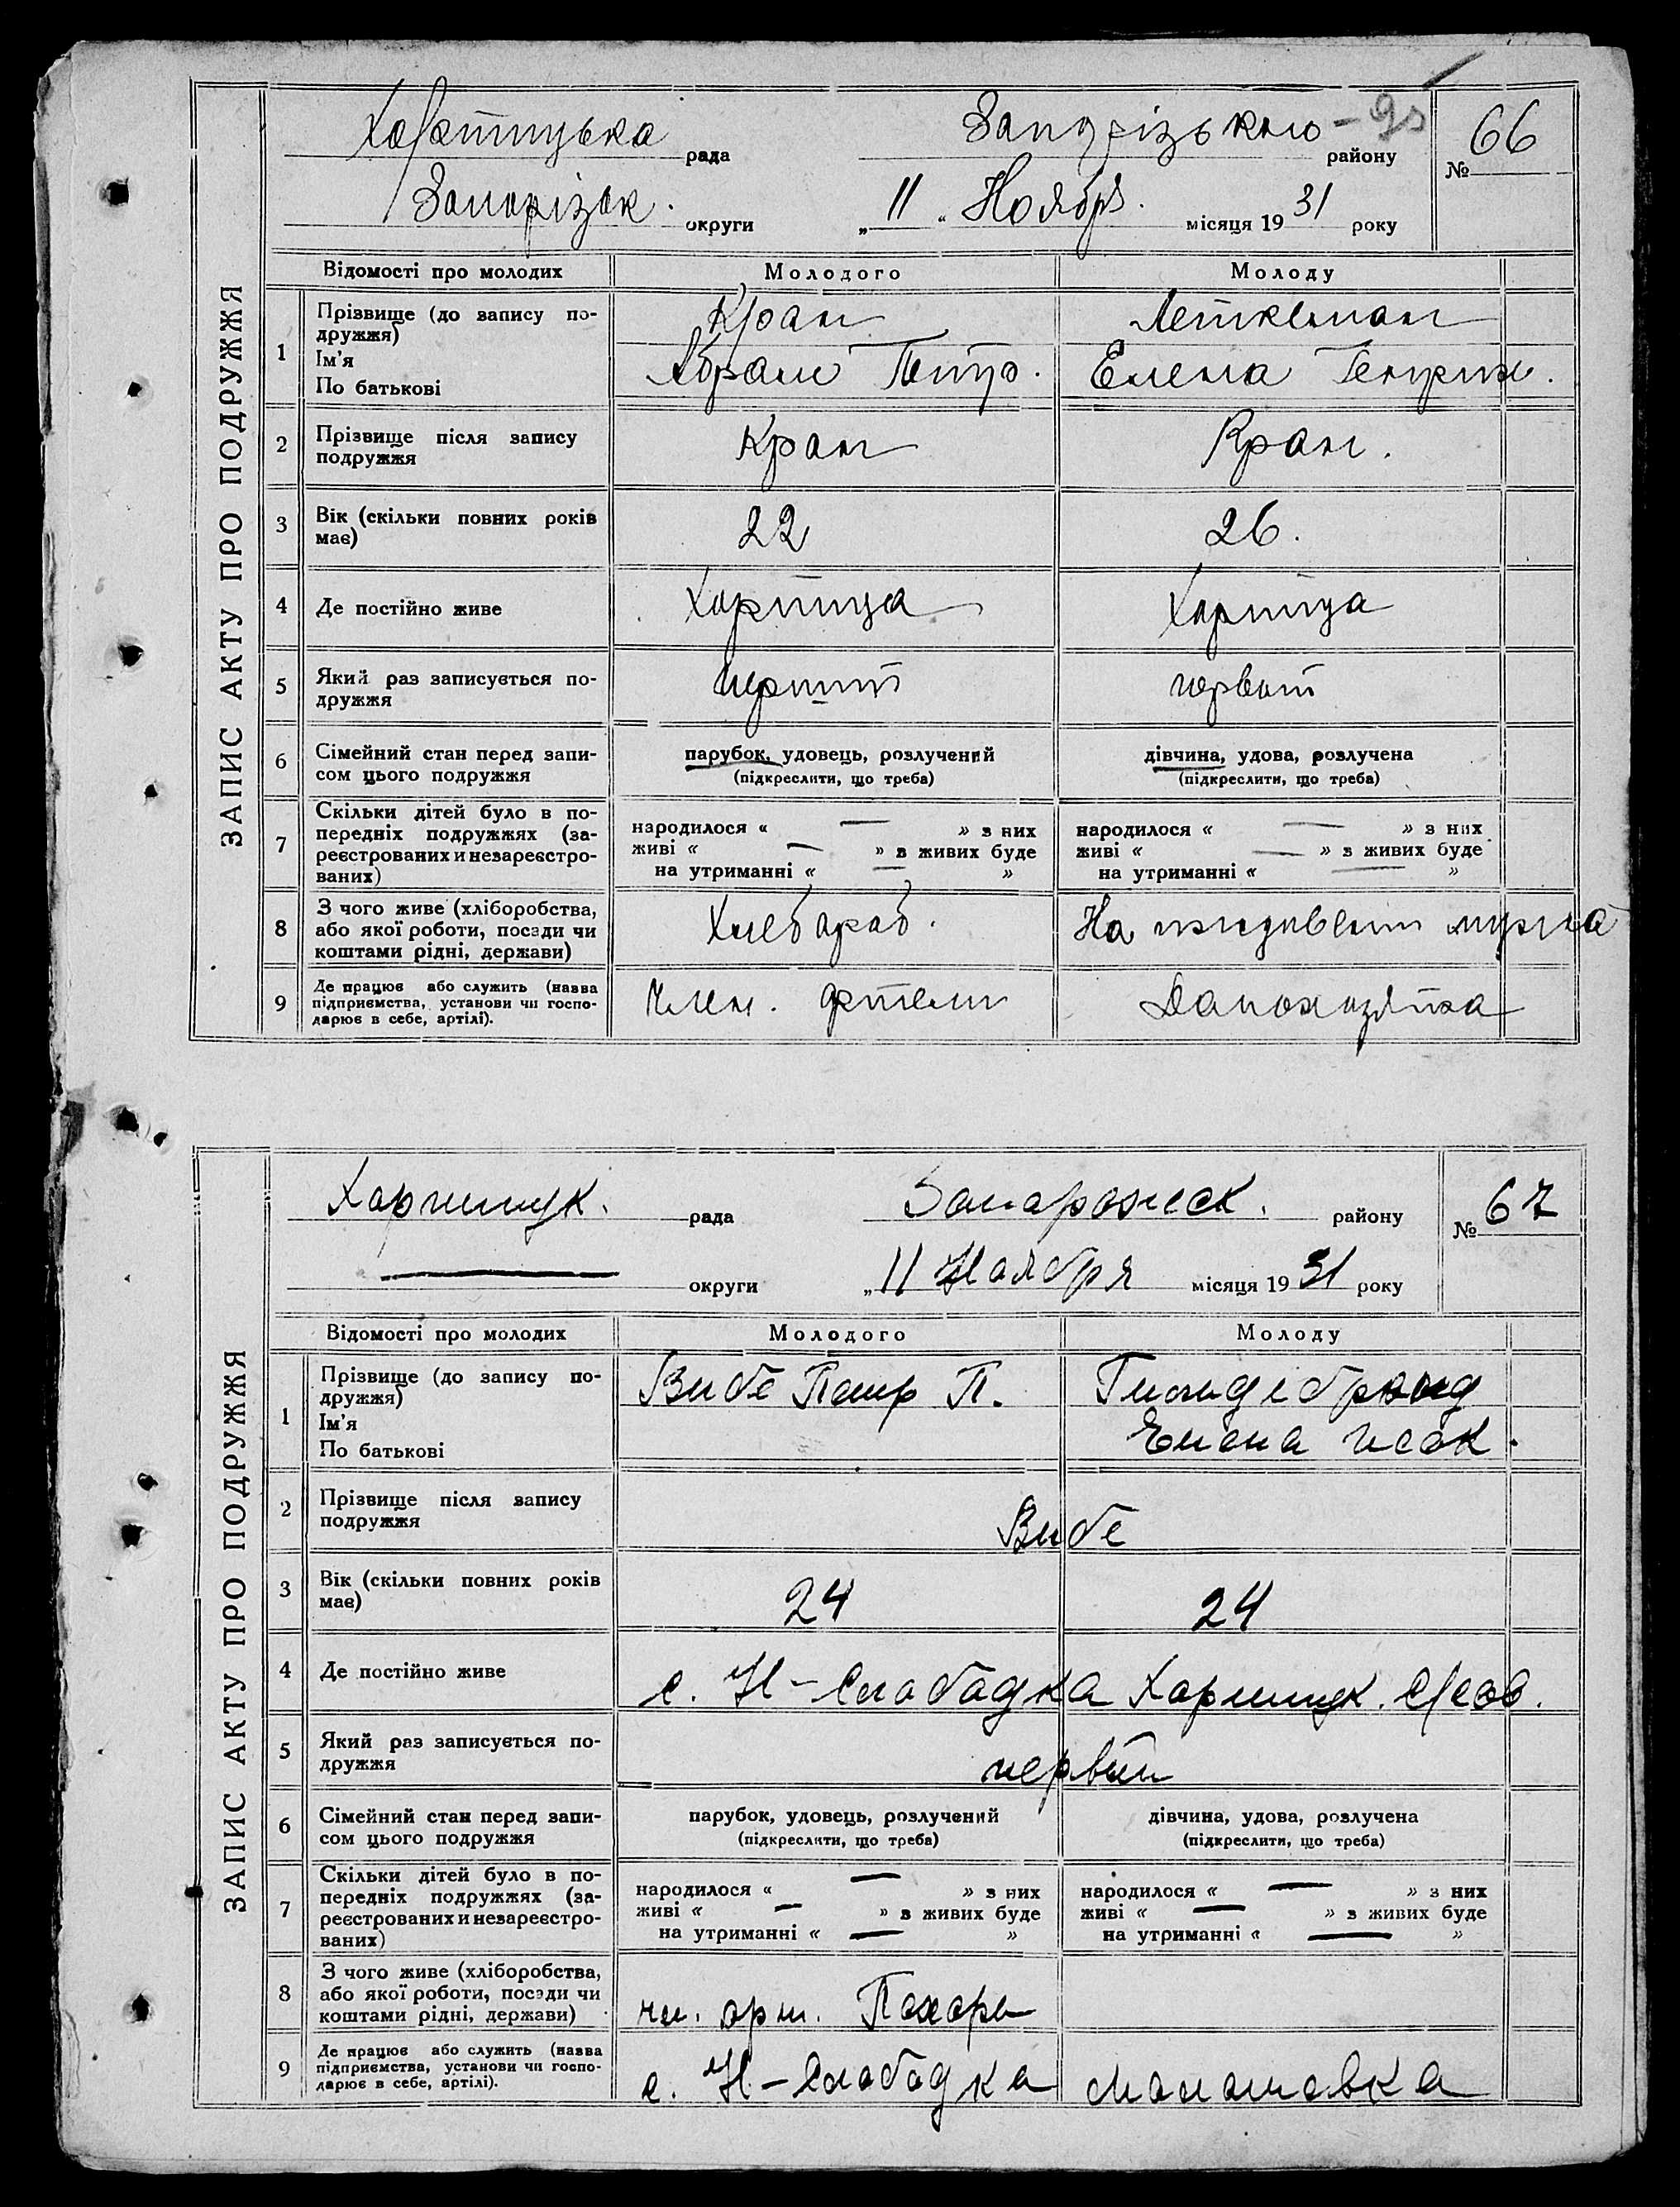 ЗАПИС АКТУ ПРО ПОДРУЖЖЯ
Хортицька рада Запорізького району № 66
Запорізьк. округи „ 11 “ Ноября. місяця 19 31 року
Відомості про молодих Молодого Молоду
1 Прізвище (до запису по-
дружжя)
Ім'я
По батькові
Кран
Абрам Петр.
Леткеман
Елена Генрих.
2 Прізвище після запису
подружжя
Кран Кран.
3 Вік (скільки повних років
має)
22 26.
4 Де постійно живе Хортица Хортица
5 Який раз записується по-
дружжя
первый
6 Сімейний стан перед запи-
сом цього подружжя
парубок, удовець, розлучений
(підкреслити, що треба)
дівчина, удова, розлучена
(підкреслити, що треба)
7 Скільки дітей було в по-
передніх подружжях (за-
реєстрованих и незареєстро-
ваних)
народилося « — » з них
живі « — » з живих буде
на утриманні « — »
народилося « — » з них
живі « — » з живих буде
на утриманні « — »
8 З чого живе (хліборобства,
або якої роботи, посади чи
коштами рідні, держави)
Хлебораб. На иждивении мужа
9 Де працює або служить (назва
підприємства, установи чи госпо-
дарює в себе, артілі).
Член. артели Домохозяйка
ЗАПИС АКТУ ПРО ПОДРУЖЖЯ
Хортицк. рада Запорожск. району № 67
— округи „ 11 Ноября місяця 19 31 року
Відомості про молодих Молодого Молоду
1 Прізвище (до запису по-
дружжя)
Ім'я
По батькові
Вибе Петр П.
Гильдебранд
Елена Исак.
2 Прізвище після запису
подружжя
Вибе
3 Вік (скільки повних років
має)
24 24
4 Де постійно живе с. Н-Слободка Хортицк. с/сов.
5 Який раз записується по-
дружжя
первый
6 Сімейний стан перед запи-
сом цього подружжя
парубок, удовець, розлучений
(підкреслити, що треба)
дівчина, удова, розлучена
(підкреслити, що треба)
7 Скільки дітей було в по-
передніх подружжях (за-
реєстрованих и незареєстро-
ваних)
народилося « — » з них
живі « — » з живих буде
на утриманні « — »
народилося « — » з них
живі « — » з живих буде
на утриманні « — »
8 З чого живе (хліборобства,
або якої роботи, посади чи
коштами рідні, держави)
чл. арт. Пахарь
9 Де працює або служить (назва
підприємства, установи чи госпо-
дарює в себе, артілі).
с. Н-Слободка